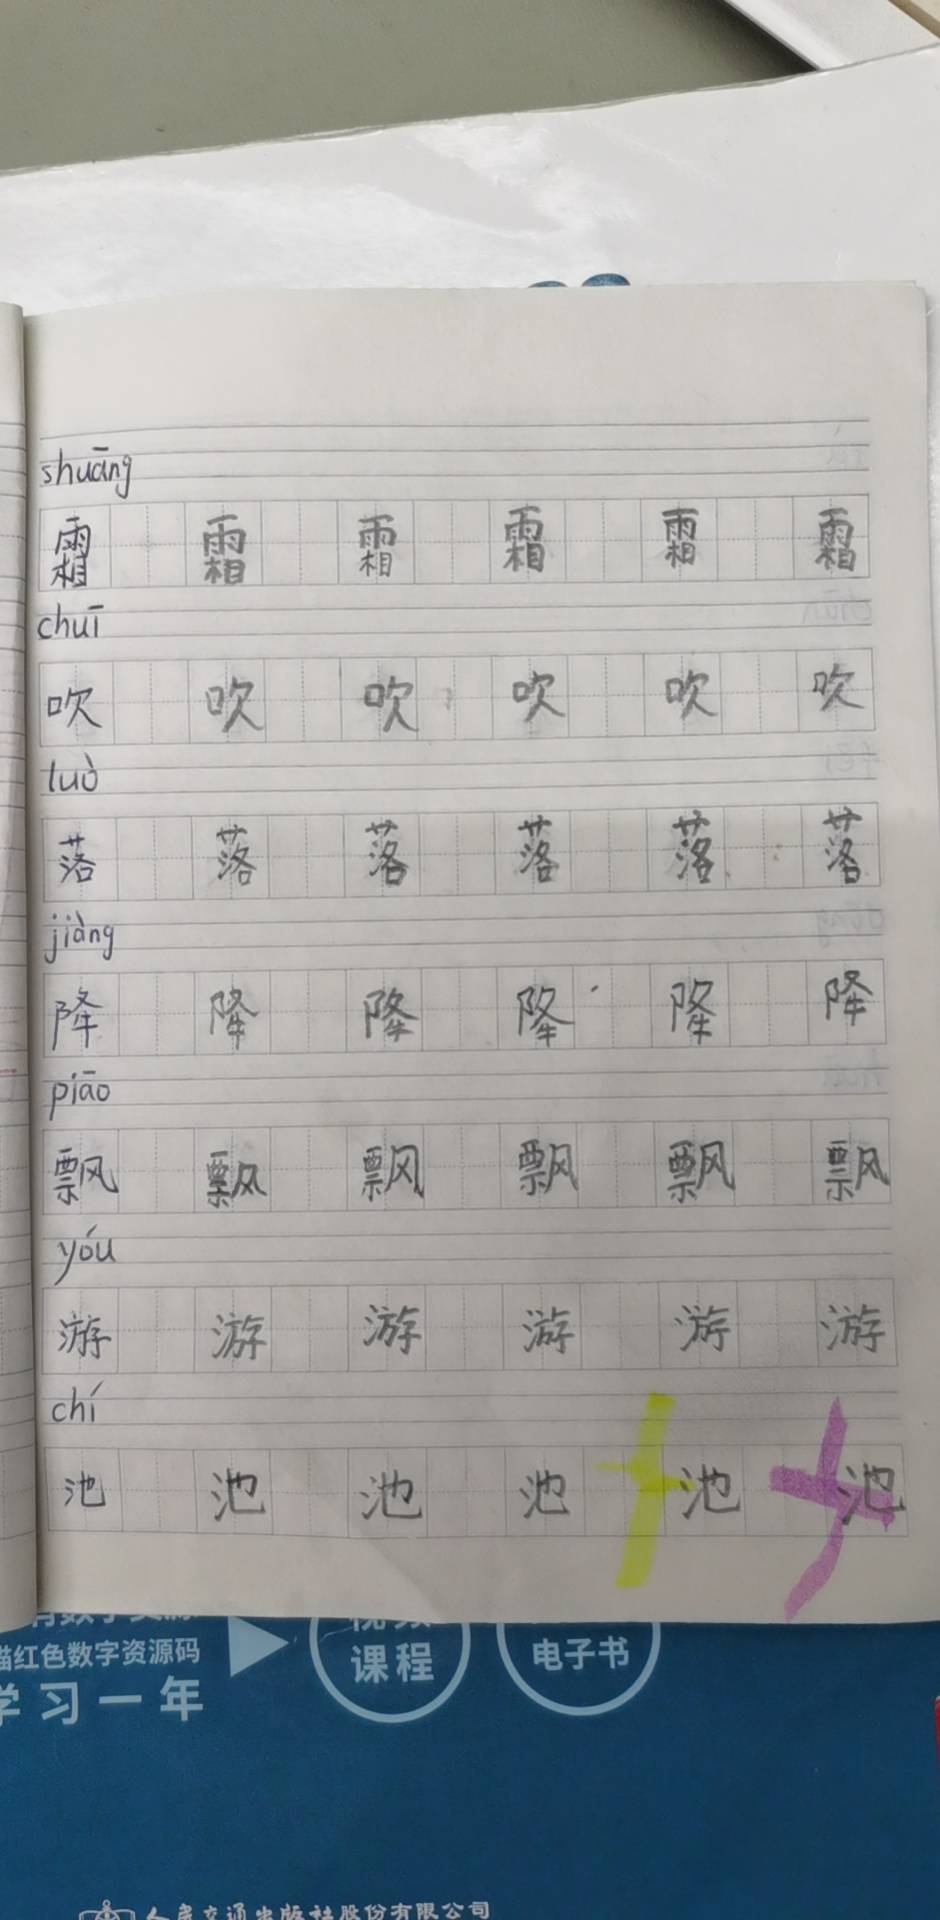 shuāng
霜 霜 霜 霜 霜 霜
chuī
吹 吹 吹 吹 吹 吹
luò
落 落 落 落 落 落
jiàng
降 降 降 降 降 降
piāo
飘 飘 飘 飘 飘 飘
yóu
游 游 游 游 游 游
chí
池 池 池 池 池 池
描红色数字资源码
学习一年
课程
电子书
人民交通出版社股份有限公司